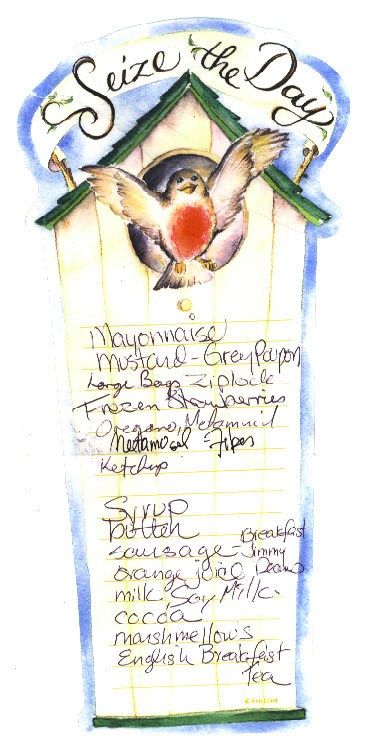 Seize the Day
Mayonnaise
Mustard - Grey Poupon
Large Bags Ziplock
Frozen Strawberries
Oregano, Metamucil
Metamosal
Ketchup
Syrup
butter
sausage - Breakfast Jimmy Deans
orange juice
milk, Soy Milk
cocoa
marshmellow's
English Breakfast
Tea